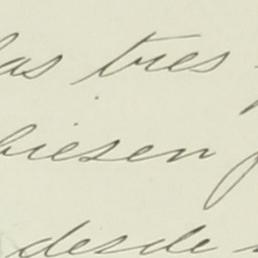 las tres
biesen
desde